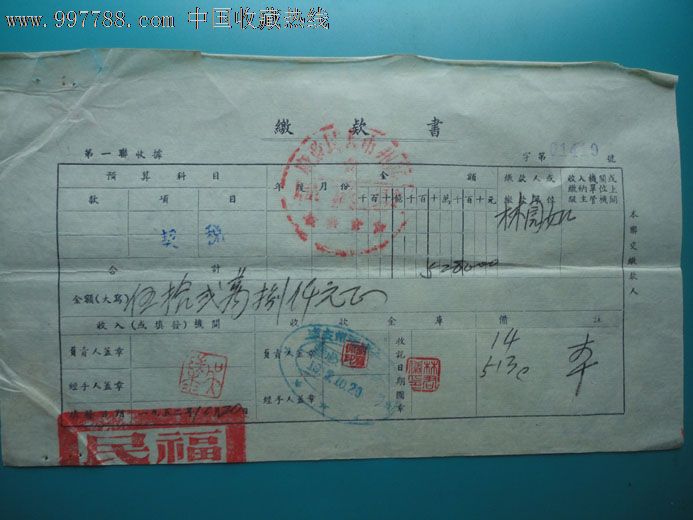 www.997788.com 中国收藏热线
繳款書
第一聯收據
字第 號
預算科目
年度
月份
金額
繳款人或繳款單位
收入機關或繳納單位級主管機關
款 項 目
千百十億千百十萬千百十元
契 稅
林
528000
合計
本聯交繳款人
金額(大寫) 伍拾弍萬捌仟元正
收入(或填發)機關
收款金庫
備註
負責人蓋章
負責人蓋章
收記日期圖章
14
513
經手人蓋章
經手人蓋章
10.20
填發日期 一九五二年10月20日
福民